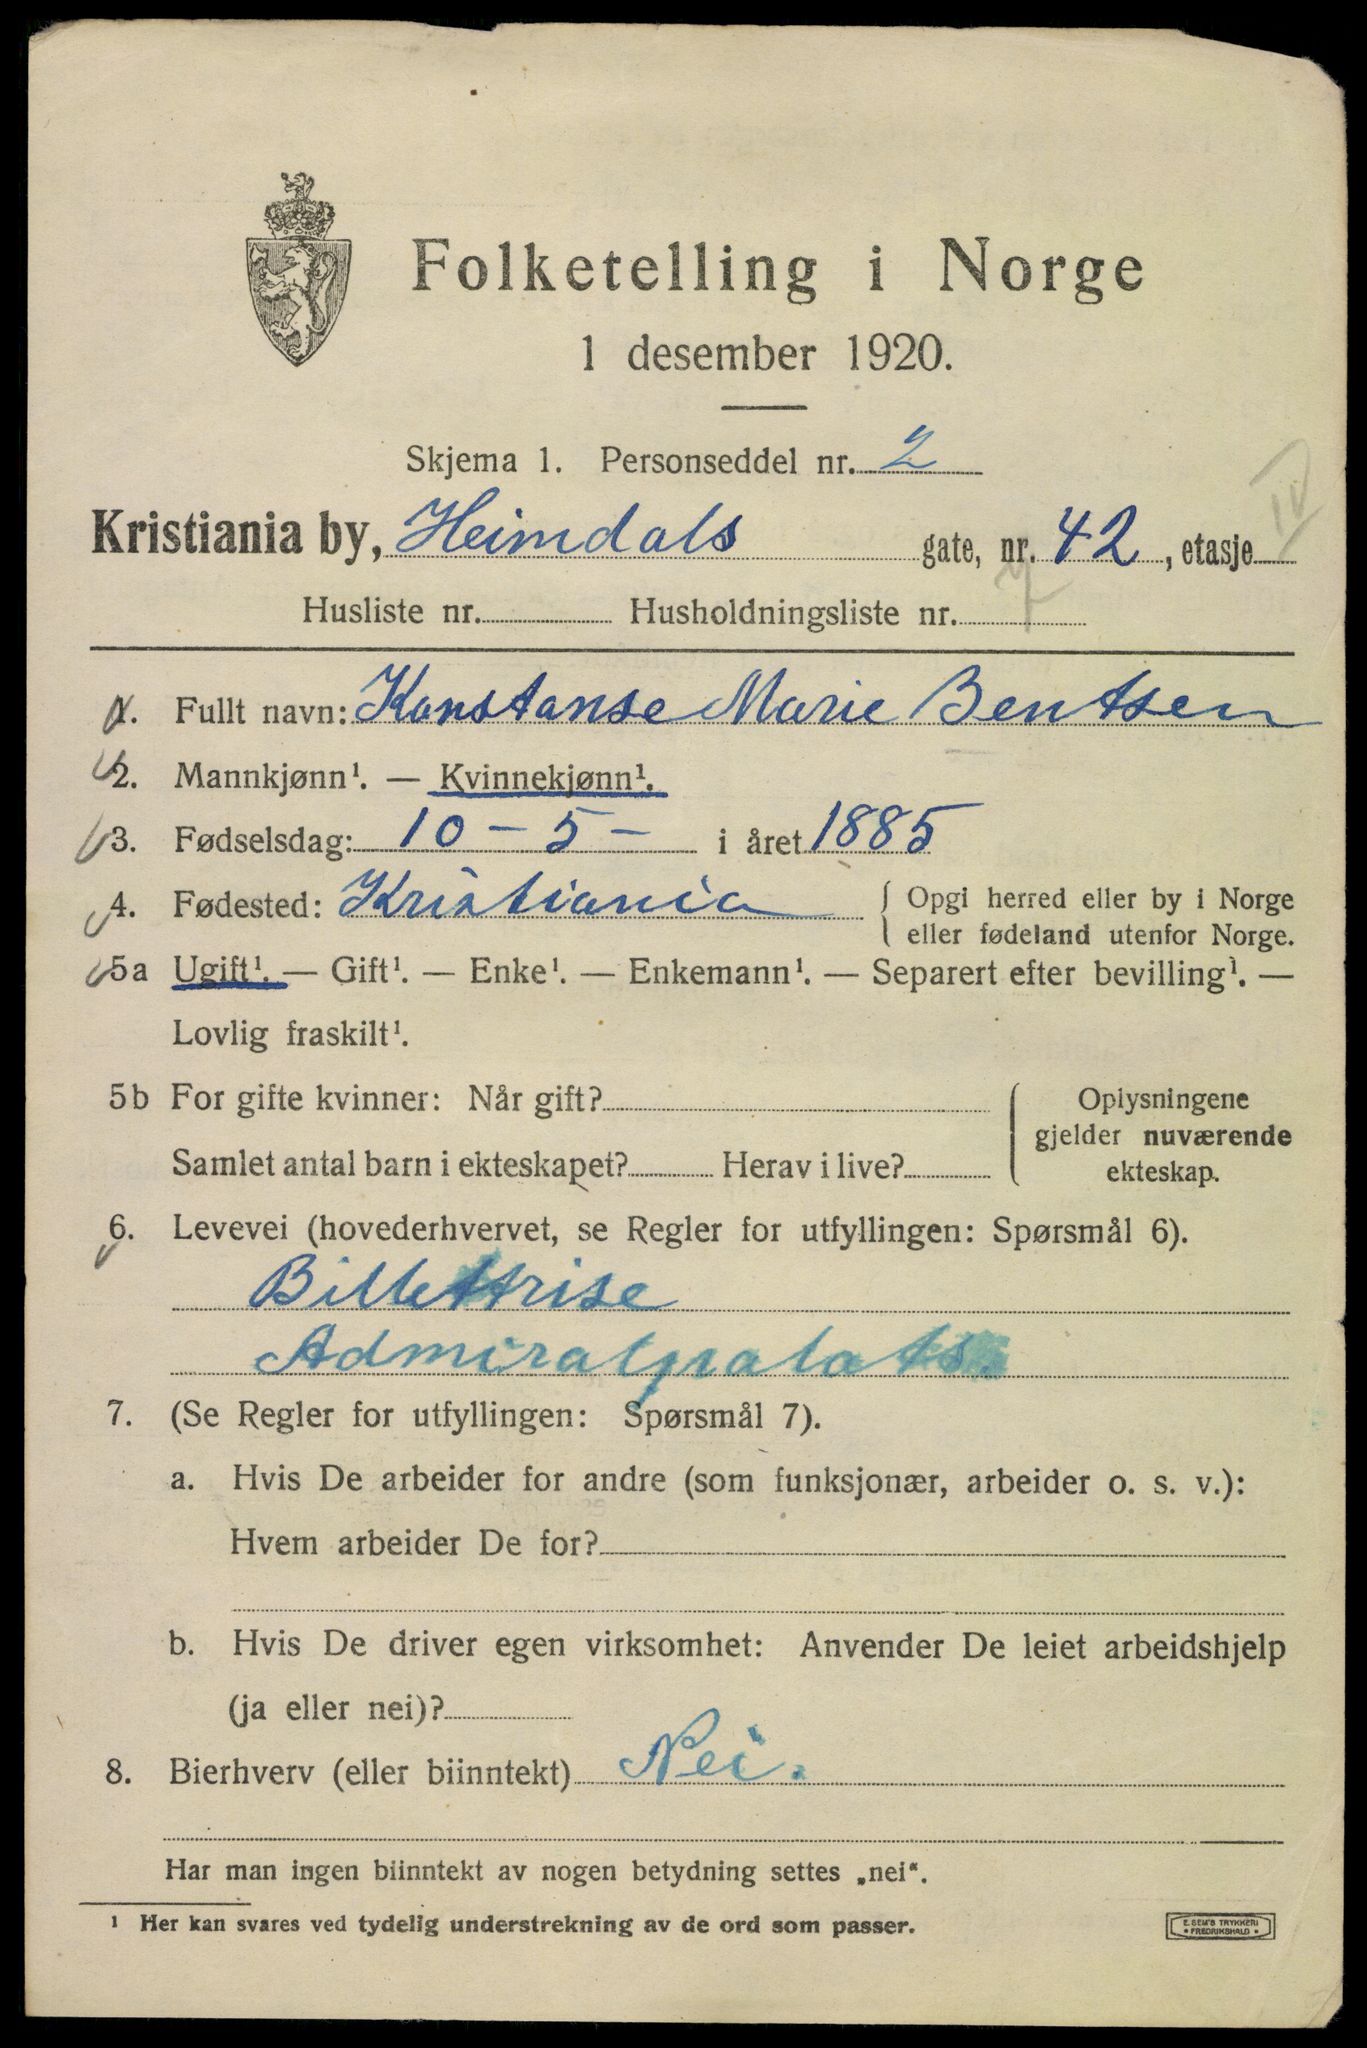 Folketelling i Norge
1 desember 1920.
Skjema 1. Personseddel nr. 2
Kristiania by, Heimdals gate, nr. 42, etasje IV
Husliste nr. Husholdningsliste nr. 7
1. Fullt navn: Konstanse Marie Bentsen
2. Mannkjønn¹. — Kvinnekjønn¹.
3. Fødselsdag: 10 – 5 – i året 1885
4. Fødested: Kristiania { Opgi herred eller by i Norge
eller fødeland utenfor Norge.
5a Ugift¹. — Gift¹. — Enke¹. — Enkemann¹. — Separert efter bevilling¹. —
Lovlig fraskilt¹.
5b For gifte kvinner: Når gift? { Oplysningene
gjelder nuværende
Samlet antal barn i ekteskapet? Herav i live? ekteskap.
6. Levevei (hovederhvervet, se Regler for utfyllingen: Spørsmål 6).
Billettrise
Admiralpalats.
7. (Se Regler for utfyllingen: Spørsmål 7).
a. Hvis De arbeider for andre (som funksjonær, arbeider o. s. v.):
Hvem arbeider De for?
b. Hvis De driver egen virksomhet: Anvender De leiet arbeidshjelp
(ja eller nei)?
8. Bierhverv (eller biinntekt) Nei.
Har man ingen biinntekt av nogen betydning settes „nei“.
¹ Her kan svares ved tydelig understrekning av de ord som passer.
E. SEM'S TRYKKERI
FREDRIKSHALD